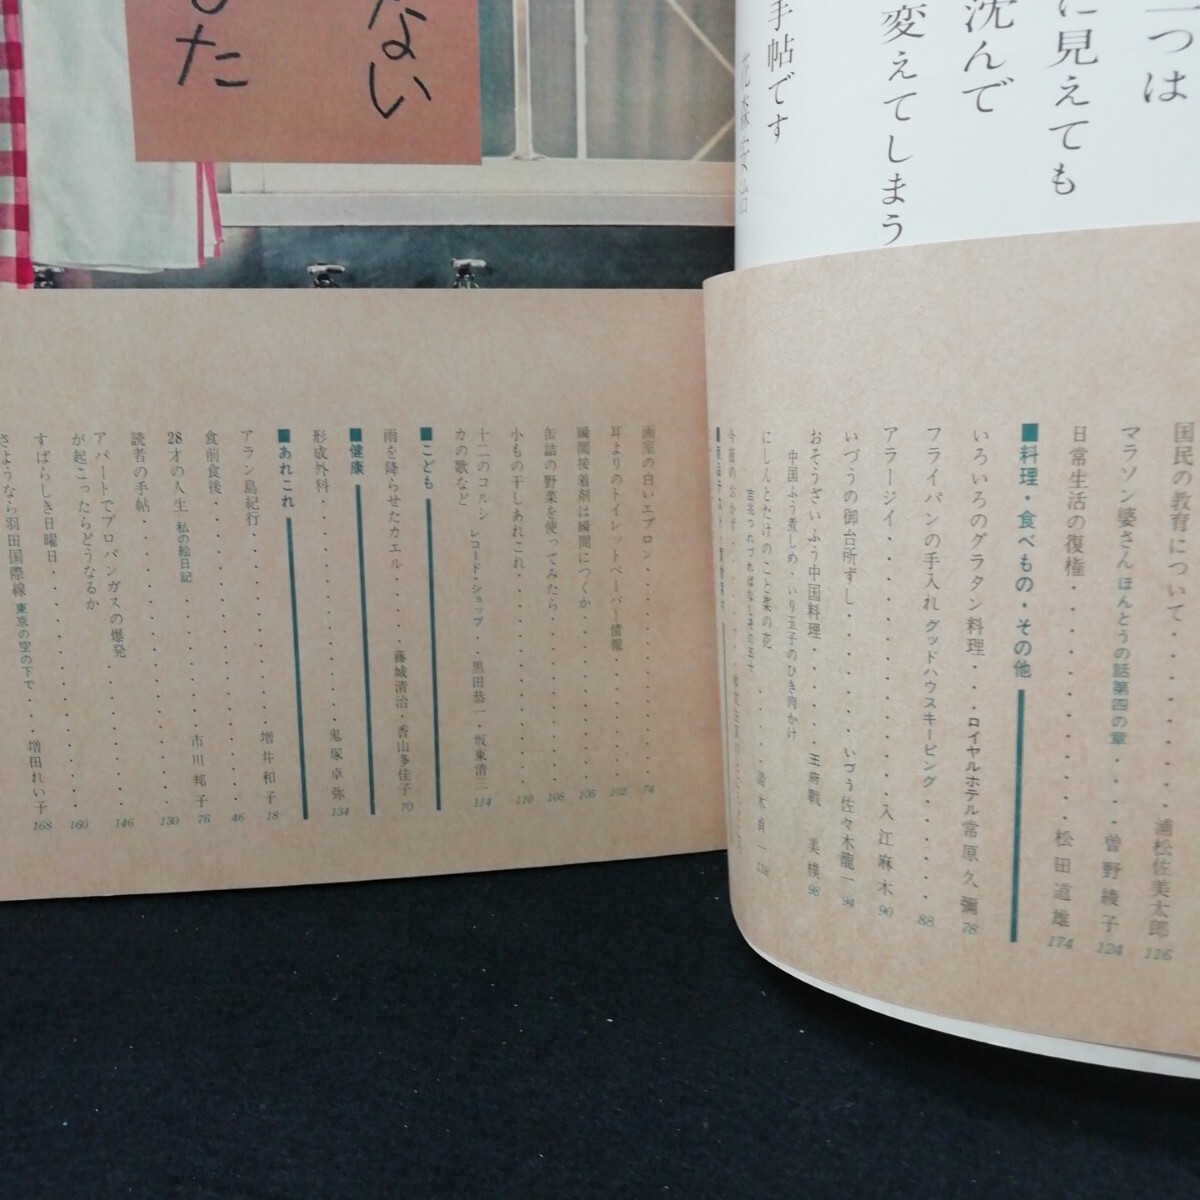 一つは
に見えても
沈んで
変えてしまう
手帖です
ない
した
国民の教育について・・・・・浦松佐美太郎 116
マラソン婆さん ほんとうの話第四の章・・・曽野綾子 124
日常生活の復権・・・・・・・松田道雄 174
■料理・食べもの・その他
いろいろのグラタン料理・・ロイヤルホテル常原久彌 78
フライパンの手入れ グッドハウスキーピング・・・・・ 88
アラージイ・・・・・・・・入江麻木 90
いづうの御台所ずし・・・・・いづう 佐々木龍一 94
おそうざいふう中国料理・・・・王府戰 美検 98
中国ふう煮しめ・いり玉子のひき肉かけ
にしんとたけのこと菜の花
吉兆つれづればなしその五十
今夜のおかず
画室の白いエプロン・・・・・・・・ 74
耳よりのトイレットペーパー情報・・・・・ 102
瞬間接着剤は瞬間につくか・・・・・・ 105
缶詰の野菜を使ってみたら・・・・・・ 108
小もの干しあれこれ・・・・・・・・ 110
十二のコルシカの歌など レコード・ショップ・・黒田恭一・坂東清三 114
■こども
雨を降らせたカエル・・・・藤城清治・香山多佳子 70
■健康
形成外科・・・・・・・・鬼塚卓弥 134
■あれこれ
アラン島紀行・・・・・・・増井和子 18
食前食後・・・・・・・・・・・ 46
28才の人生 私の絵日記・・・・・市川邦子 76
読者の手帖・・・・・・・・・・ 130
アパートでプロパンガスの爆発
が起こったらどうなるか・・・・・・ 146
すばらしき日曜日・・・・・・・・ 160
さようなら羽田国際線 東京の空の下で・・・増田れい子 168